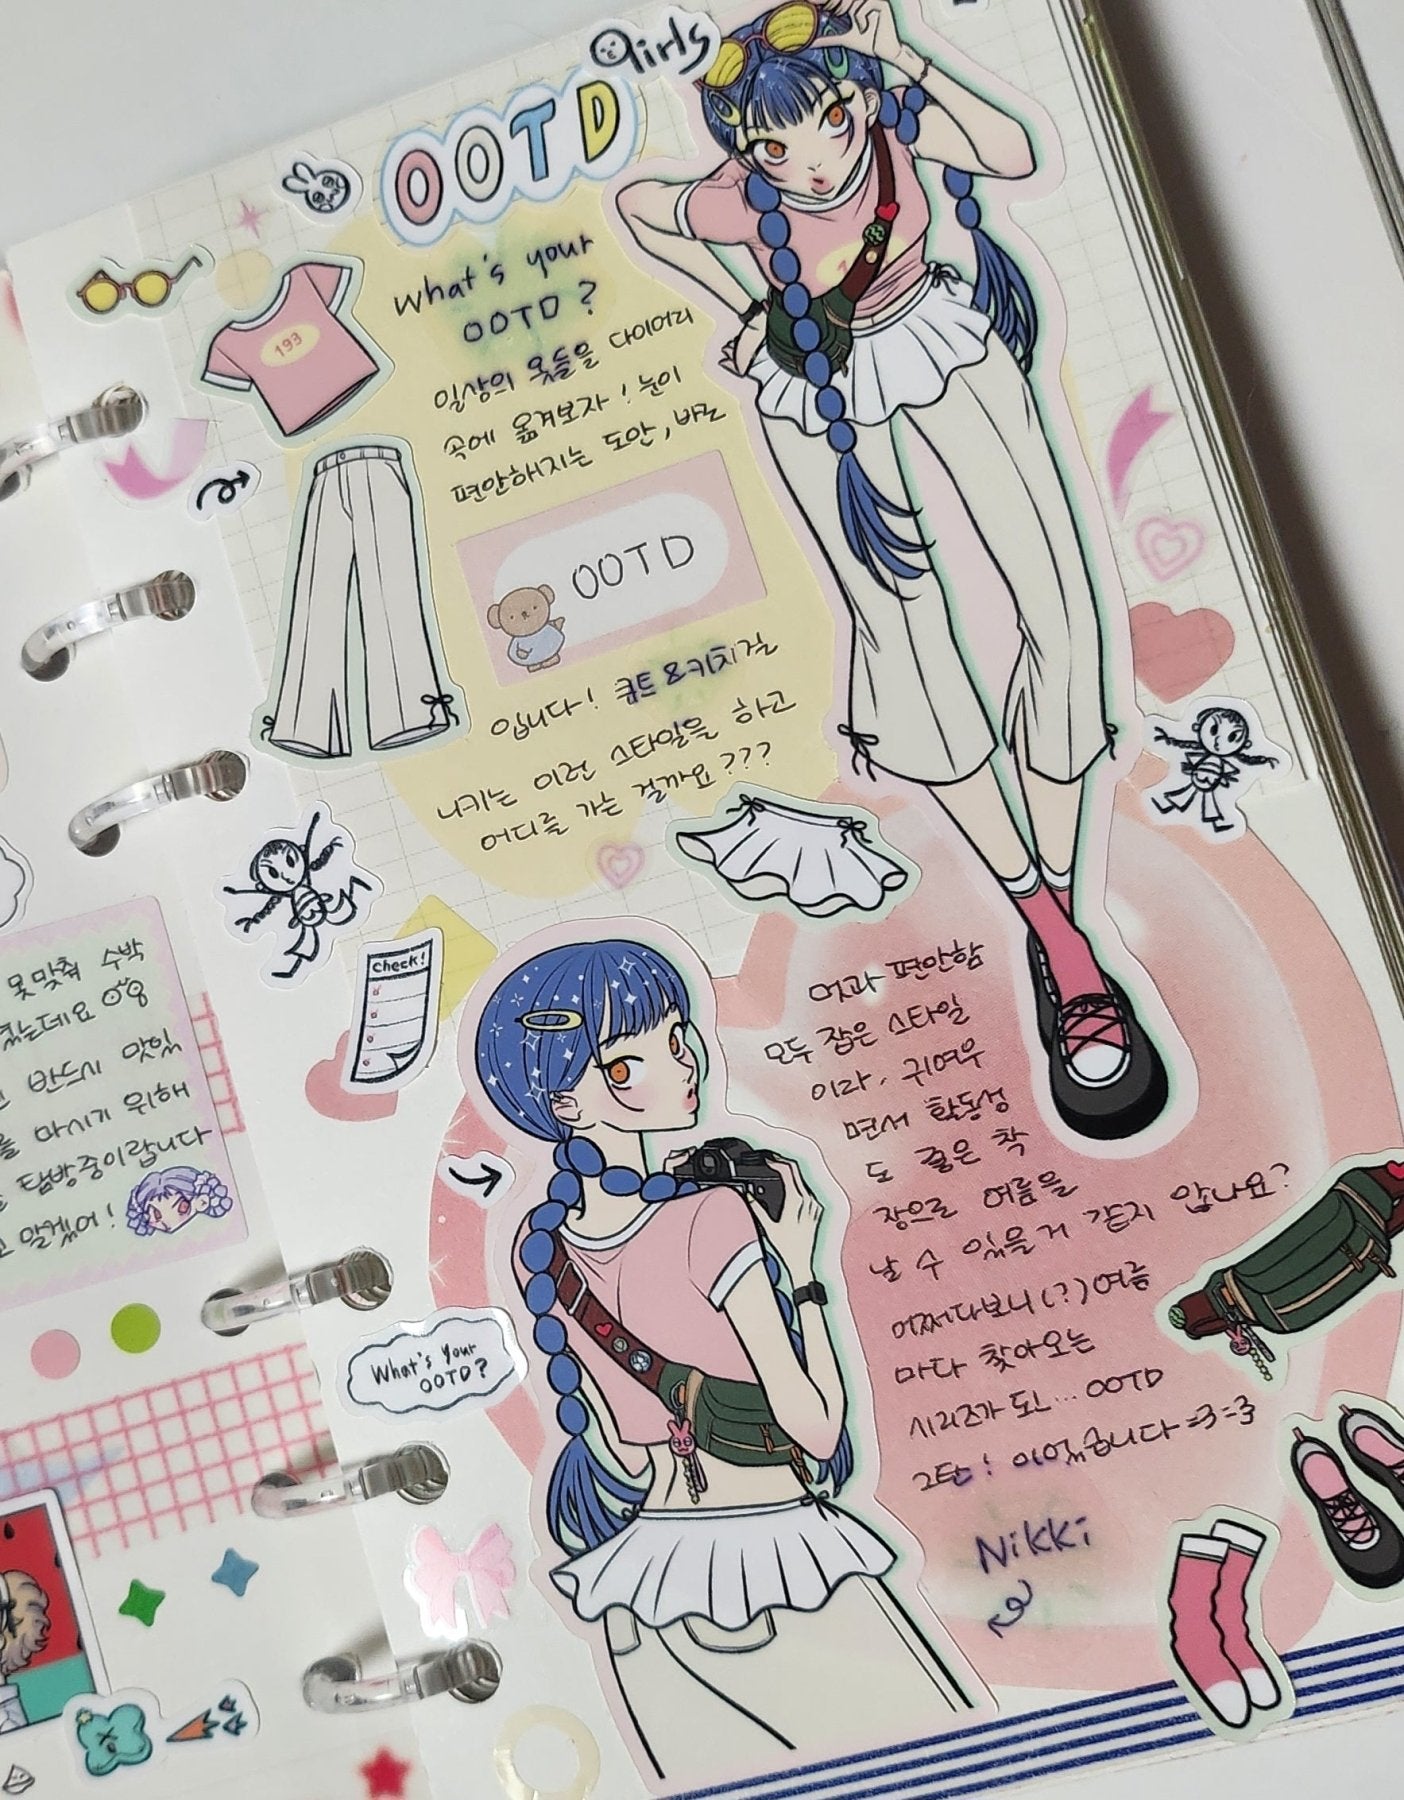 girls
OOTD
What's your
OOTD?
일상의 옷들을 다이어리
속에 옮겨보자! 눈이
편안해지는 도안, 바로
OOTD
입니다! 큐트&키치걸
니키는 이런 스타일을 하고
어디를 가는 걸까요???
193
Check!
멋과 편안함
모두 잡은 스타일
이라, 귀여우
면서 활동성
도 좋은 착
장으로 여름을
날 수 있을거 같지 않나요?
어쩌다보니(?) 여름
마다 찾아오는
시리즈가 된... OOTD
그탄! 이었습니다 =3=3
Nikki
What's your
OOTD?
못맞춰 수박
있는데요
반드시 맛있
를 마시기 위해
탐방중이랍니다
말겠어!